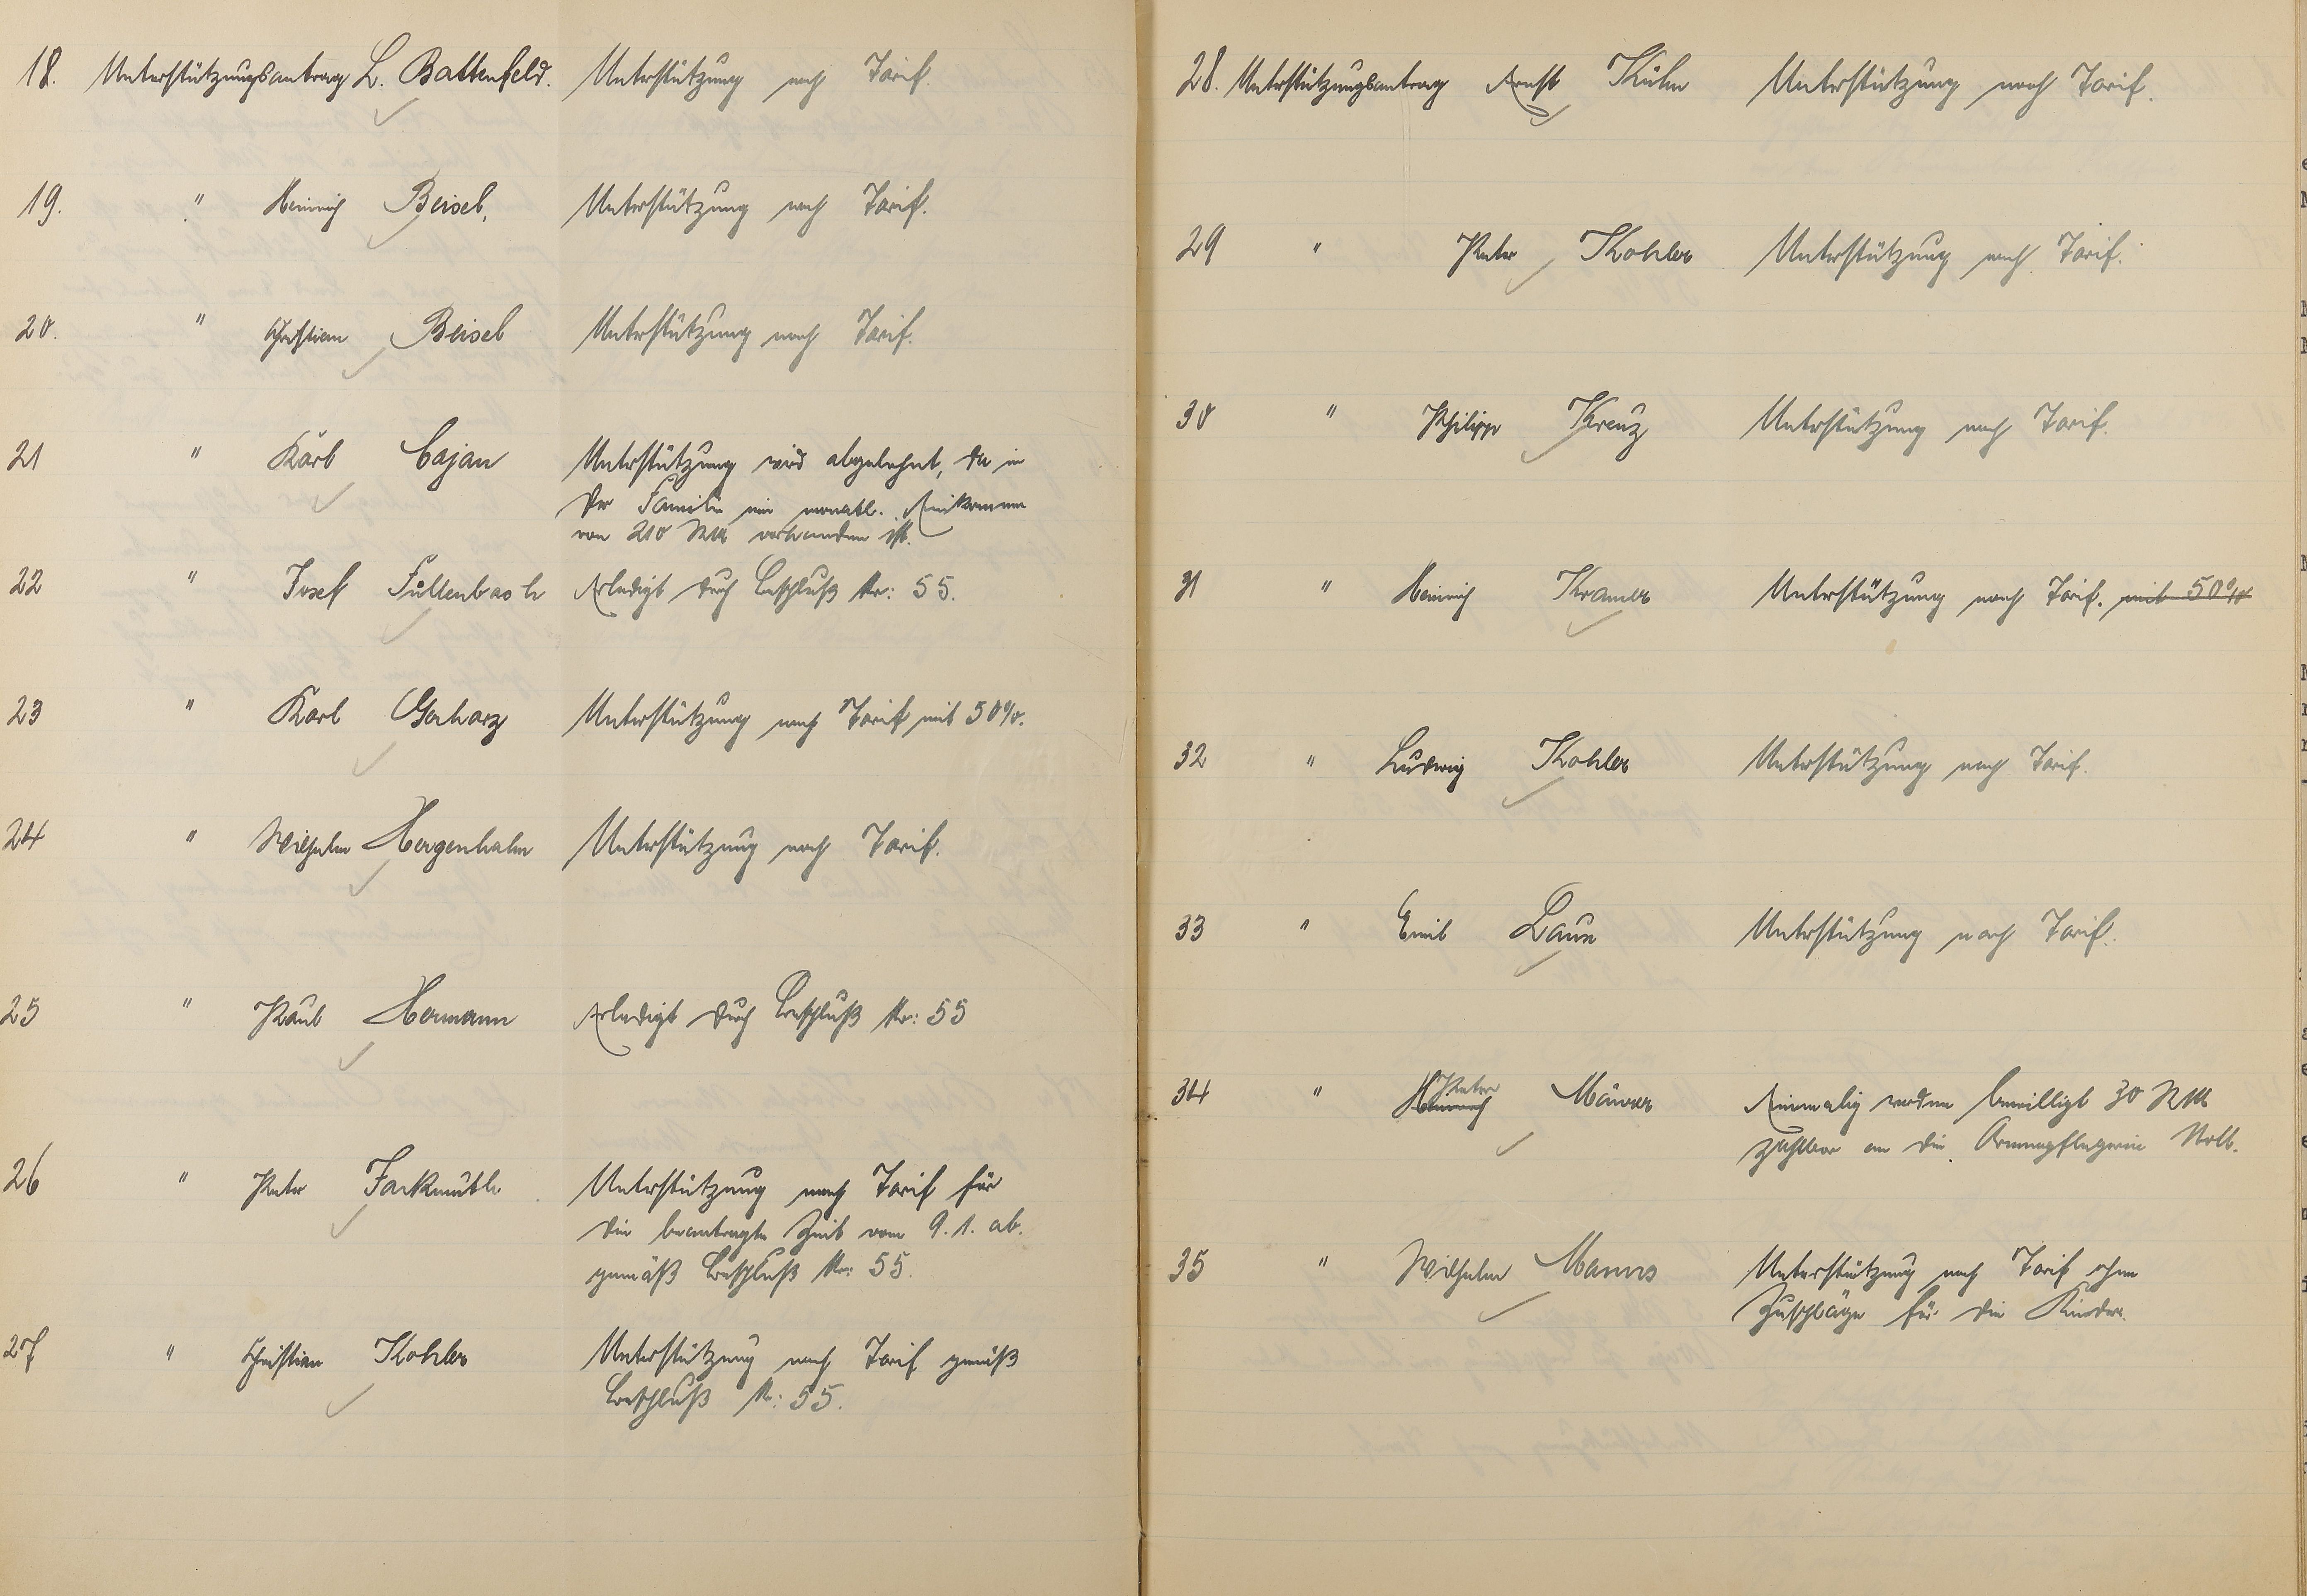 18. Unterstützungsantrag L. Battenfeld. Unterstützung nach Tarif.
19. " Heinrich Beisel, Unterstützung nach Tarif.
20. " Christian Beisel Unterstützung nach Tarif.
21 " Karl Cajan Unterstützung wird abgelehnt, da in
der Familie ein monatl. Einkommen
von 210 RM vorhanden ist.
22 " Josef Füllenbach Erledigt durch Beschluß Nr: 55.
23 " Karl Gerharz Unterstützung nach Tarif mit 50%.
24 " Wilhelm Hergenhahn Unterstützung nach Tarif.
25 " Paul Hermann Erledigt durch Beschluß Nr: 55
26 " Peter Unterstützung nach Tarif für
die beantragte Zeit vom 9.1. ab.
gemäß Beschluß Nr: 55.
27 " Christian Kohler Unterstützung nach Tarif gemäß
Beschluß Nr: 55.
28. Unterstützungsantrag Ernst Kühn Unterstützung nach Tarif.
29 " Peter Kohler Unterstützung nach Tarif.
30 " Philipp Kreuz Unterstützung nach Tarif.
31 " Heinrich Kramer Unterstützung nach Tarif. mit 50%
32 " Ludwig Kohler Unterstützung nach Tarif.
33 " Emil Laux Unterstützung nach Tarif.
34 " Heinrich Peter Mäurer Einmalig werden bewilligt 30 RM
zahlbar an die Armenpflegerin Noll.
35 " Wilhelm Manns Unterstützung nach Tarif ohne
Zuschläge für die Kinder.